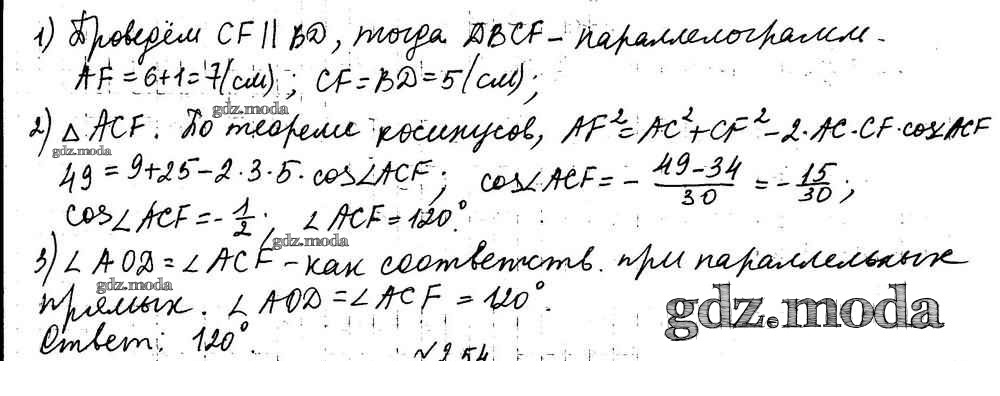 1) Проведём CF || BD, тогда DBCF – параллелограмм.
AF = 6+1 = 7 (см); CF = BD = 5 (см);
gdz.moda
2) △ ACF. По теореме косинусов, AF² = AC² + CF² – 2·AC·CF·cos ACF
gdz.moda
49 = 9+25–2·3·5·cos∠ACF; cos∠ACF = – 49–34/30 = – 15/30;
cos∠ACF = – 1/2; ∠ACF = 120°.
gdz.moda
3) ∠AOD = ∠ACF – как соответств. при параллельных
gdz.moda
прямых. ∠AOD = ∠ACF = 120°.
gdz.moda
Ответ: 120°.